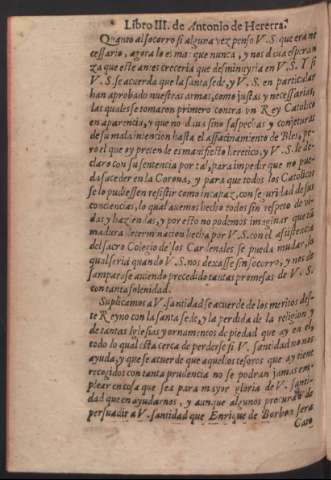 Libro III. de Antonio de Herrera.
Quanto al socorro si alguna vez penso V.S. que era ne
cessario, agora lo es mas que nunca, y nos da la esperan
za que este antes creceria que desminuyria en V.S. Y si
V.S. se acuerda que la santa sede, y V.S. en particular
han aprobado nuestras armas, como justas y necessarias,
las quales se tomaron primero contra un Rey Catolico
en apariencia, y que no dava sino sospechas y conjeturas
de su mala intencion hasta el assasinamento de Bles, pe-
ro el que oy pretende es manifiesto heretico, y V.S. le de-
claro con su sentencia por tal, para impedir que no pue-
da suceder en la Corona, y para que todos los Catolicos
se lo pudiessen resistir como incapaz, con seguridad de sus
conciencias, lo qual avemos hecho todos sin respeto de vi-
das y haziendas, y por esto no podemos imaginar que tã
madura determinacion hecha por V.S. con el assistencia
del sacro Colegio de los Cardenales se pueda mudar, lo
qual seria quando V.S. nos dexasse sin socorro, y nos de-
samparasse aviendo precedido tantas promesas de V.S.
con tanta solenidad.
Suplicamos a V. santidad se acuerde de los meritos des-
te Reyno con la santa sede, y la perdida de la religion y
de tantas Iglesias y ornamentos de piedad que ay en el,
todo lo qual esta cerca de perderse si V. santidad no nos
ayuda, y que se acuerde que aquellos tesoros que ay tiene
recogidos con tanta prudencia no se podran jamas em-
plear en cosa que sea para mayor gloria de V. santi-
dad que en ayudarnos, y aunque algunos procuran de
persuadir a V. santidad que Enrique de Borbon sera
Cato